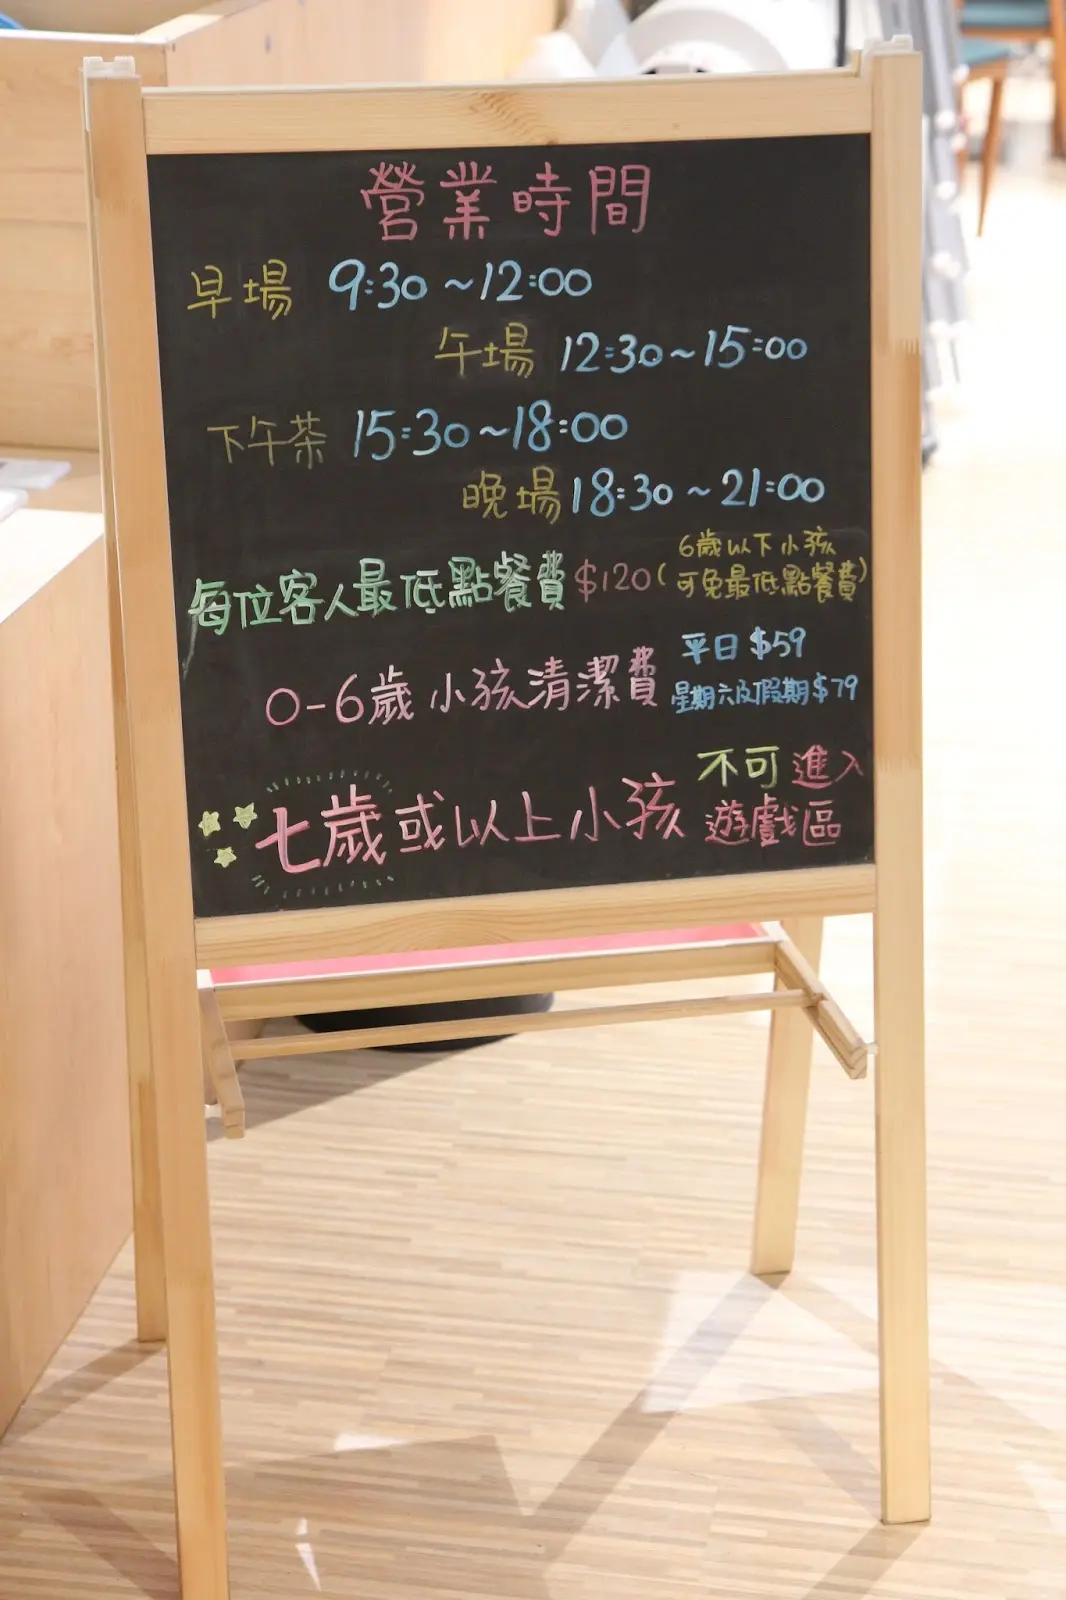 營業時間
早場 9:30~12:00
午場 12:30~15:00
下午茶 15:30~18:00
晚場 18:30~21:00
每位客人最低點餐費$120(6歲以下小孩
可免最低點餐費)
0-6歲小孩清潔費 平日$59
星期六及假期$79
七歲或以上小孩 不可進入
遊戲區